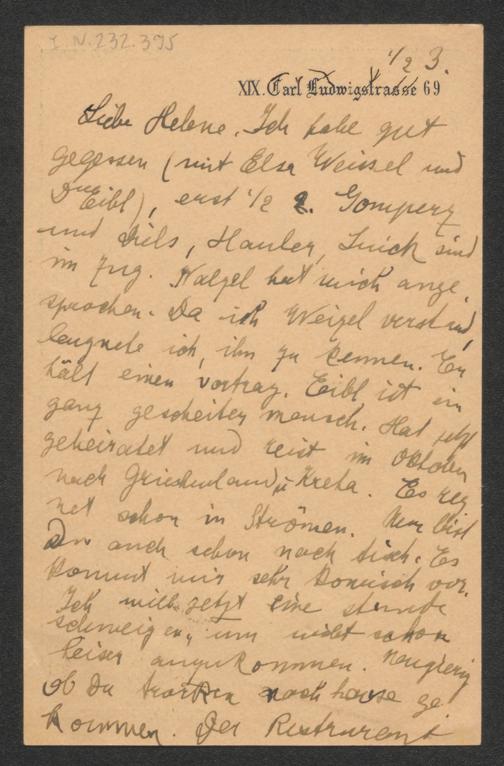 I. N. 232.395
1/2 3.
XIX. Carl Ludwigstrasse 69
Liebe Helene, Ich habe gut
gegessen (mit Elsa Weissel und
Eibl), erst 1/2 2. Gomperz
und Diels, Hauler, Luick sind
im Zug. Nalgel hat mich ange
sprochen. Da ich Weigel verstand,
leugnete ich, ihn zu kennen. Er
hält einen Vortrag. Eibl ist ein
ganz gescheiter mensch. Hat jetzt
geheiratet und reist im Oktober
nach Griechenland u Kreta. Es reg
net schon in Strömen. Nun bist
Du auch schon nach tisch. Es
kommt mir sehr komisch vor.
Ich will jetzt eine stunde
schweigen, um nicht schon
heiser anzukommen. Neugierig
ob Du trocken nach hause ge
kommen. Der Restaurant